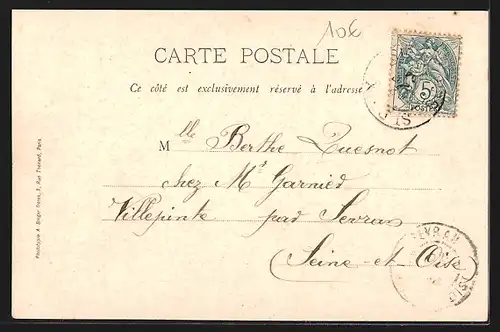 10€
CARTE POSTALE
Ce côté est exclusivement réservé à l'adresse
5c
POSTES
Mlle Berthe Quesnot
chez Mr Garnied
Villepinte par Sevran
Seine-et-Oise
SEVRAN
Phototypie A. Breger Frères, 9, Rue Thénard, Paris